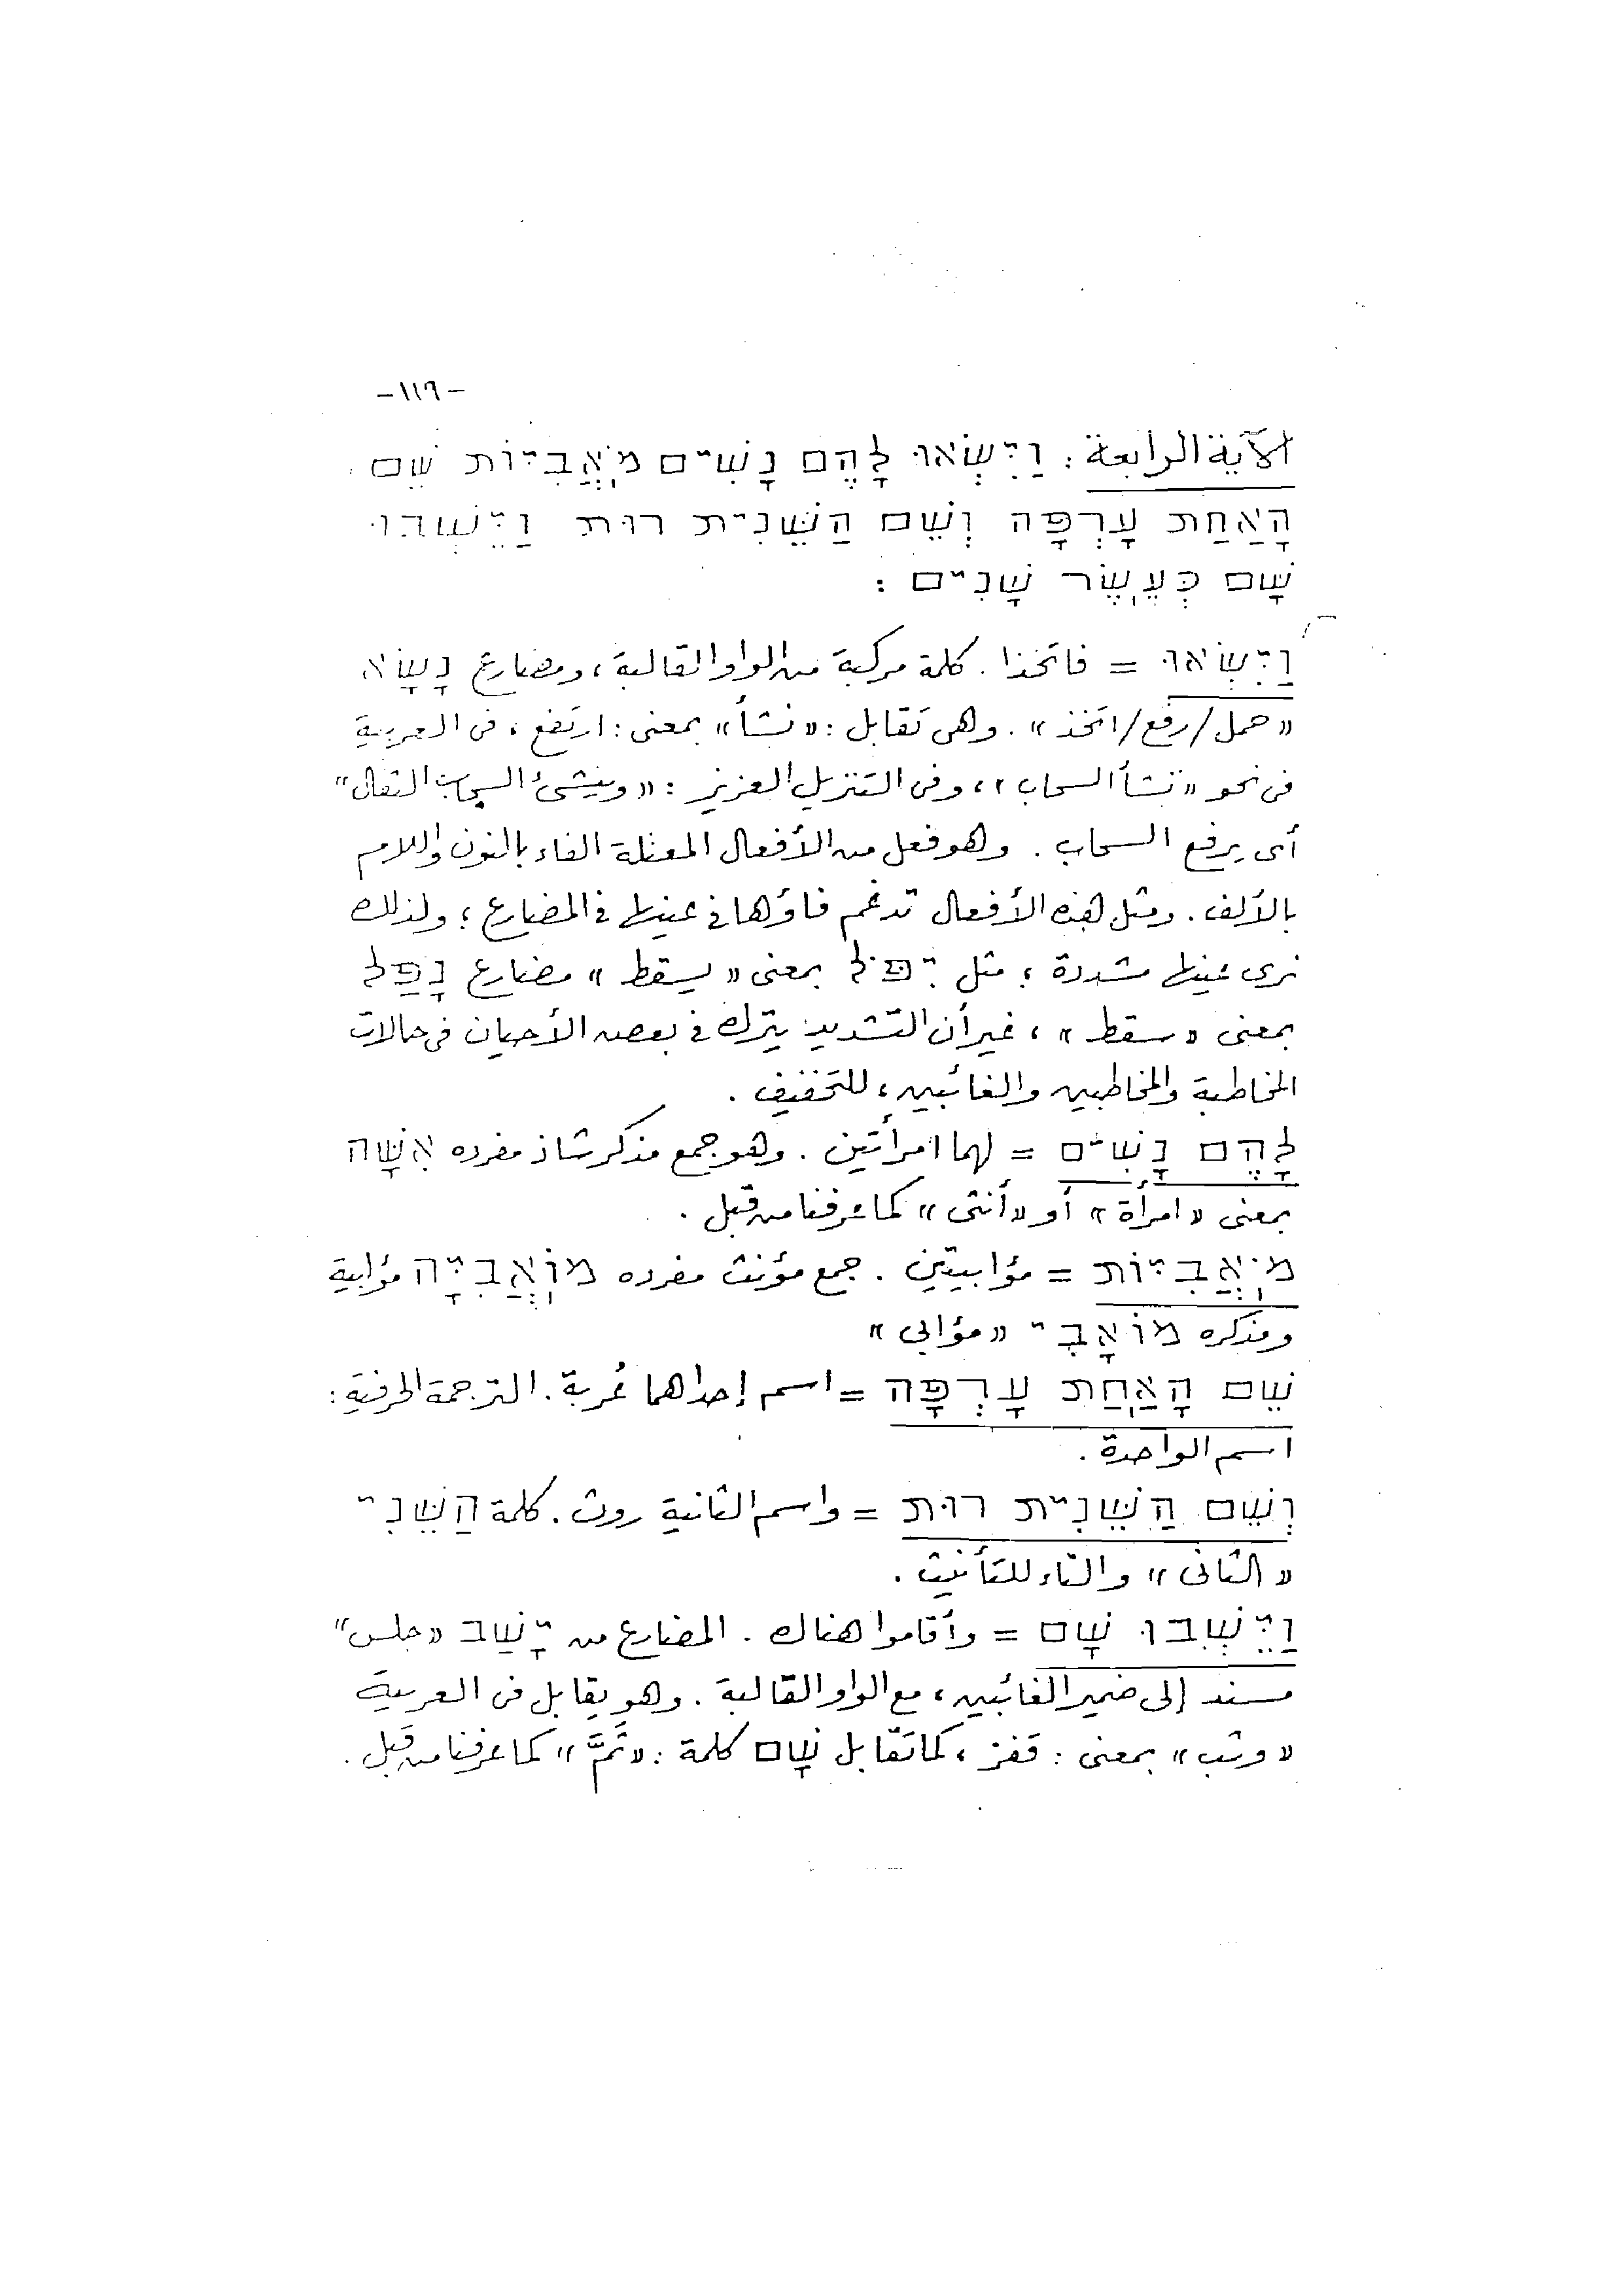 -١١٩-
الآية الرابعة : וַיִּשְׂאוּ לָהֶם נָשִׁים מֹאֲבִיּוֹת שֵׁם
הָאַחַת עָרְפָּה וְשֵׁם הַשֵּׁנִית רוּת וַיֵּשְׁבוּ
שָׁם כְּעֶשֶׂר שָׁנִים :
וַיִּשְׂאוּ = فاتخذا . كلمة مركبة من الواو القالبة ، ومضارع נָשָׂא
« حمل / رفع / اتخذ » . وهى تقابل : « نشأ » بمعنى : ارتفع ، فى العربية
فى نحو « نشأ السحاب » ، وفى التنزيل العزيز : « وينشئ السحاب الثقال »
أى يرفع السحاب . وهو فعل من الأفعال المعتلة الفاء بالنون واللام
بالألف . ومثل هذه الأفعال تدغم فاؤها فى عينها فى المضارع ؛ ولذلك
نرى عينها مشددة ؛ مثل יִפֹּל بمعنى « يسقط » مضارع נָפַל
بمعنى « سقط » ، غير أن التشديد يترك فى بعض الأحيان فى حالات
المخاطبة والمخاطبين والغائبين ، للتخفيف .
לָהֶם נָשִׁים = لهما امرأتين . وهو جمع مذكر شاذ مفرده אִשָּׁה
بمعنى « امرأة » أو « أنثى » كما عرفنا من قبل .
מֹאֲבִיּוֹת = مؤابيتين . جمع مؤنث مفرده מוֹאֲבִיָּה مؤابية
ومذكره מוֹאָבִי « مؤابى »
שֵׁם הָאַחַת עָרְפָּה = اسم إحداهما عُربة . الترجمة الحرفية :
اسم الواحدة .
וְשֵׁם הַשֵּׁנִית רוּת = واسم الثانية روث . كلمة הַשֵּׁנִי
« الثانى » والتاء للتأنيث .
וַיֵּשְׁבוּ שָׁם = وأقاموا هناك . المضارع من יָשַׁב « جلس »
مسند إلى ضمير الغائبين ، مع الواو القالبة . وهو يقابل فى العربية
« وثب » بمعنى : قفز ، كما تقابل שָׁם كلمة : « ثَمَّ » كما عرفنا من قبل .